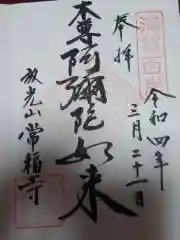 奉拝
令和四年
三月二十一日
本尊阿彌陀如来
放光山
常福寺